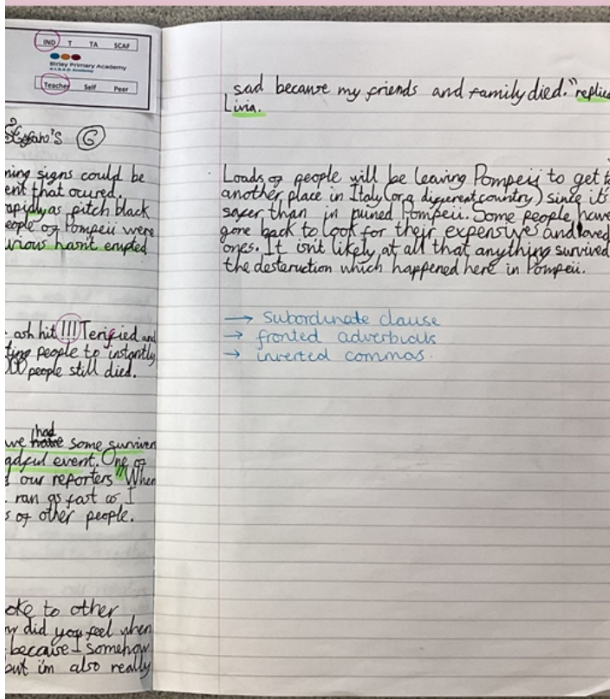 IND T TA SCAF
Birley Primary Academy
Teacher Self Peer
G
ning signs could be
ent that ocured.
rapidly as pitch black
eople of Pompeii were
uvious hasn't erupted
ash hit!!! Terrified and
ting people to instantly
people still died.
we had have some surviven
adful event. One of
our reporters "When
ran as fast as I
s of other people.
oke to other
w did you feel when
because I somehow
but im also really
sad because my friends and family died." replied
Livia.
Loads of people will be leaving Pompeii to get to
another place in Italy (or a different country) since it's
safer than in ruined Pompeii. Some people have
gone back to look for their expensives and loved
ones. It isn't likely at all that anything survived
the desteruction which happened here in Pompeii.
→ Subordinate clause
→ fronted adverbials
→ inverted commas.